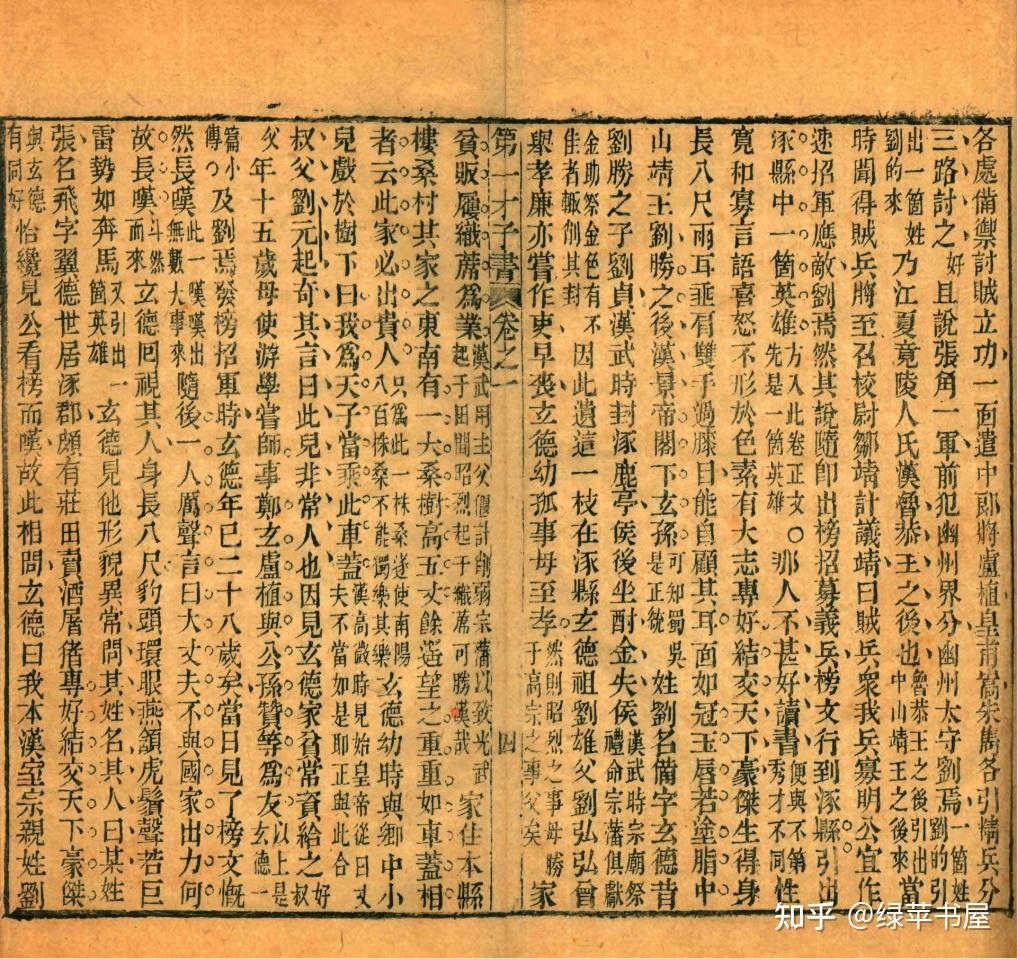 各處備禦討賊立功一面遣中郎將盧植皇甫嵩朱雋各引精兵分
三路討之好且說張角一軍前犯幽州界分幽州太守劉焉一箇姓劉的引
出一箇姓劉的來乃江夏竟陵人氏漢魯恭王之後也魯恭王之後引出中山靖王之後來當
時聞得賊兵將至召校尉鄒靖計議靖曰賊兵衆我兵寡明公宜作
速招軍應敵劉焉然其說隨即出榜招募義兵榜文行到涿縣引出
涿縣中一箇英雄方入此卷正文先是一箇英雄○那人不甚好讀書便與不第秀才不同性
寬和寡言語喜怒不形於色素有大志專好結交天下豪傑生得身
長八尺兩耳垂肩雙手過膝目能自顧其耳面如冠玉唇若塗脂中
山靖王劉勝之後漢景帝閣下玄孫可知蜀是正統姓劉名備字玄德昔
劉勝之子劉貞漢武時封涿鹿亭侯後坐酎金失侯漢武時宗廟祭禮命宗藩俱獻
金助祭金色有不佳者輒削其封因此遺這一枝在涿縣玄德祖劉雄父劉弘弘曾
舉孝廉亦嘗作吏早喪玄德幼孤事母至孝然則昭烈之事母勝于高宗之事父矣家
第一才子書 卷之一 四
貧販屨織蓆為業漢武用主父偃計削弱宗藩以致光武起于田間昭烈起于織蓆可勝漢哉家住本縣
樓桑村其家之東南有一大桑樹高五丈餘遙望之重重如車蓋相
者云此家必出貴人只為此一株桑遂使南陽八百株桑不能獨樂其樂玄德幼時與鄉中小
兒戲於樹下曰我為天子當乘此車蓋漢高微時見始皇帝從曰夫不當如是耶正與此合
叔父劉元起奇其言曰此兒非常人也因見玄德家貧常資給之好叔
父年十五歲母使游學嘗師事鄭玄盧植與公孫瓚等為友以上是玄德一
篇小傳及劉焉發榜招軍時玄德年已二十八歲矣當日見了榜文慨
然長嘆此一嘆嘆出無數大事來隨後一人厲聲言曰大丈夫不與國家出力何
故長嘆斗然而來玄德回視其人身長八尺豹頭環眼燕頷虎鬚聲若巨
雷勢如奔馬又引出一箇英雄玄德見他形貌異常問其姓名其人曰某姓
張名飛字翼德世居涿郡頗有莊田賣酒屠豬專好結交天下豪傑
與玄德有同好恰纔見公看榜而嘆故此相問玄德曰我本漢室宗親姓劉
知乎 @绿苹书屋